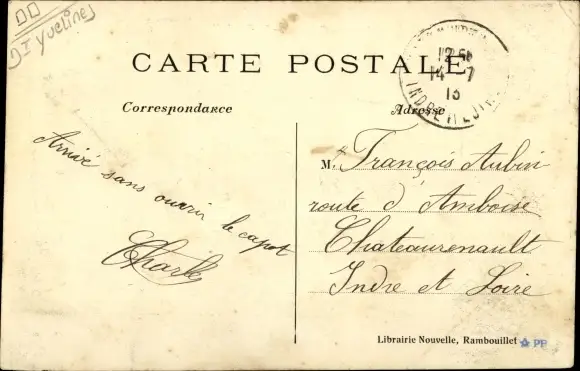 DI Yvelines
CARTE POSTALE
Correspondance
Adresse
14 7
INDRE ET LOIRE
Arrivé sans ouvrir le capot
Charles
M. François Aubin
route d'Amboise
Chateaurenault
Indre et Loire
Librairie Nouvelle, Rambouillet
PP